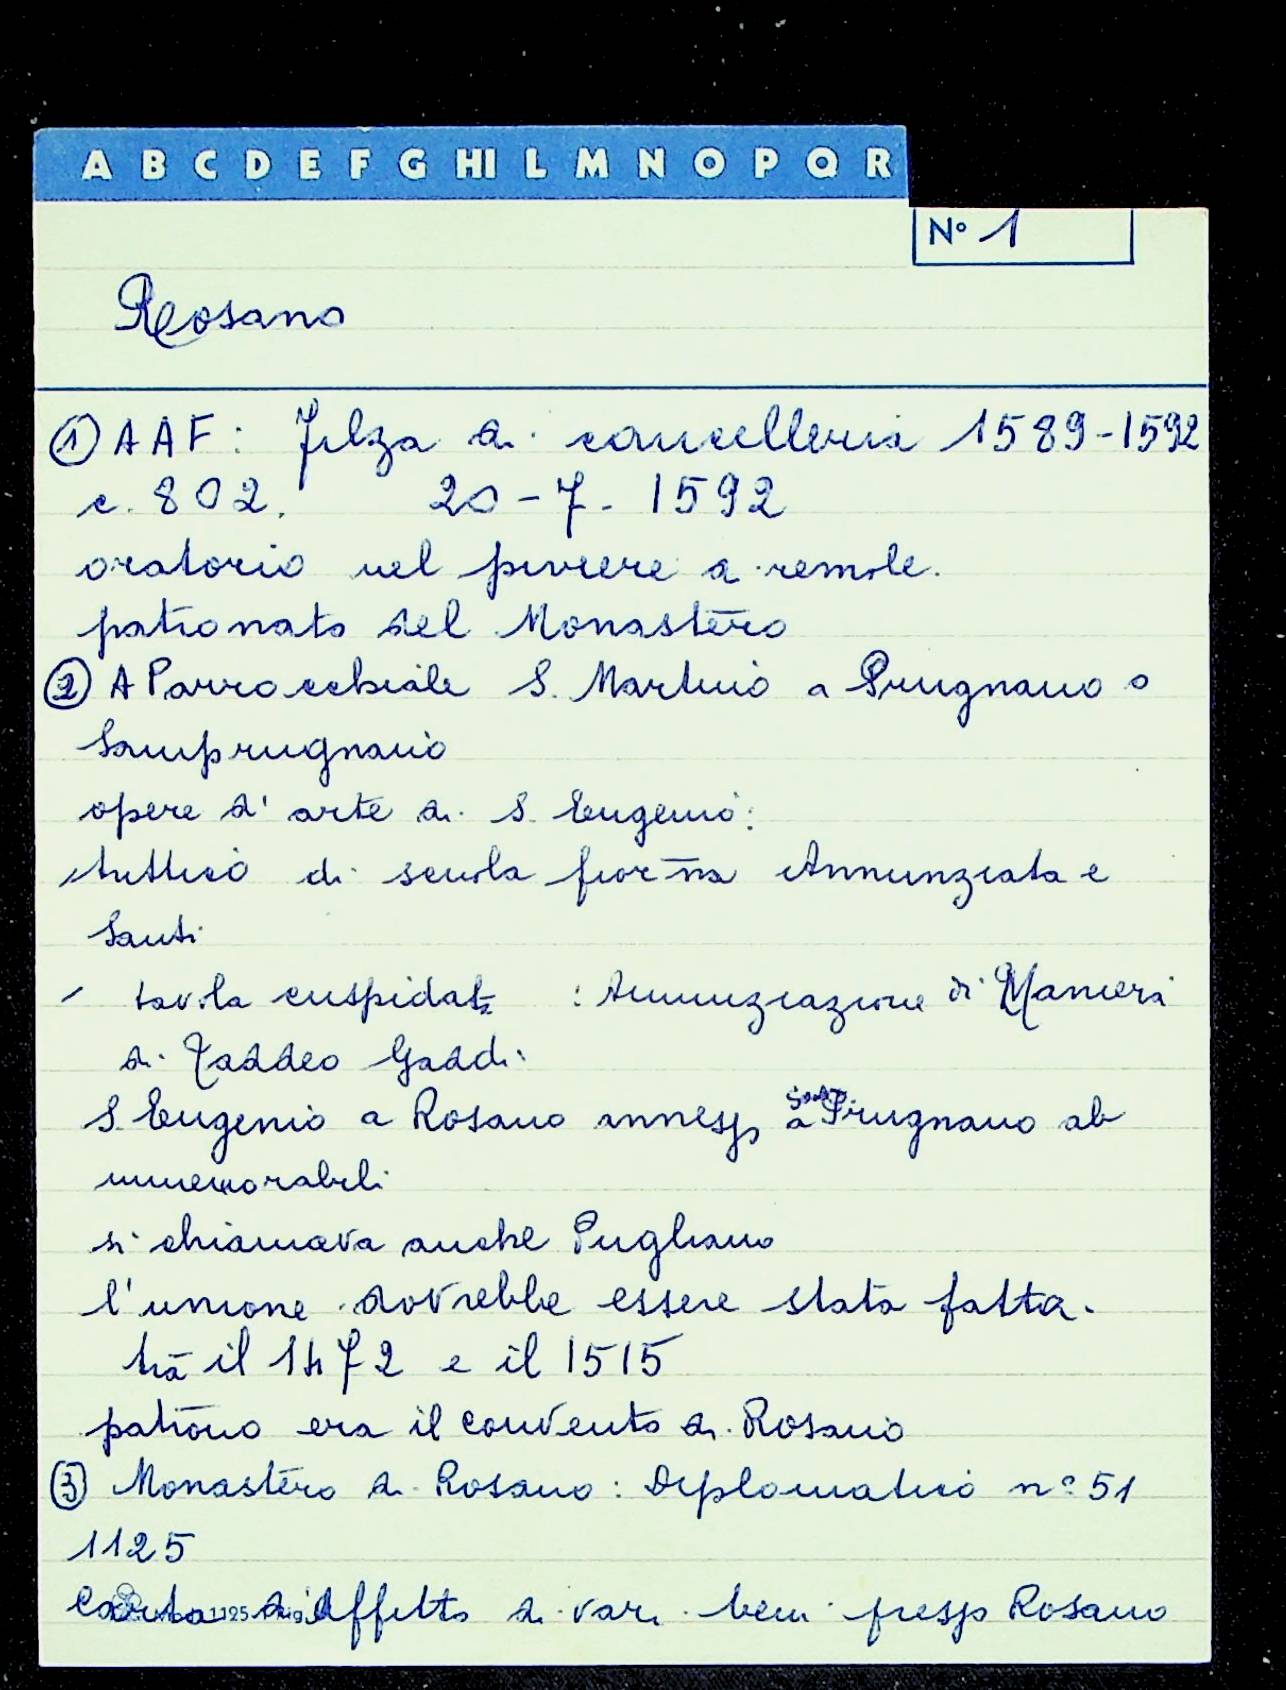 A B C D E F G HI L M N O P Q R
N° 1
Rosano
① AAF: Filza di cancelleria 1589-1592
c. 802. 20-7-1592
oratorio nel piviere a remole.
patronato del Monastero
② A Parrocchiale S. Martino a Prugnano o
Samprugnano
opere d'arte di S. Eugenio:
, trittico di scuola fior̄na Annunziata e
Santi
- tavola cuspidata : Annunziazione di Maniera
di Taddeo Gaddi
S. Eugenio a Rosano annesso a Prugnano ab
immemorabili
si chiamava anche Pugliano
l'unione dovrebbe essere stata fatta
tra il 1472 e il 1515
patrono era il convento di Rosano
③ Monastero di Rosano: Diplomatico n° 51
1125
Carta di Affitto di vari beni presso Rosano